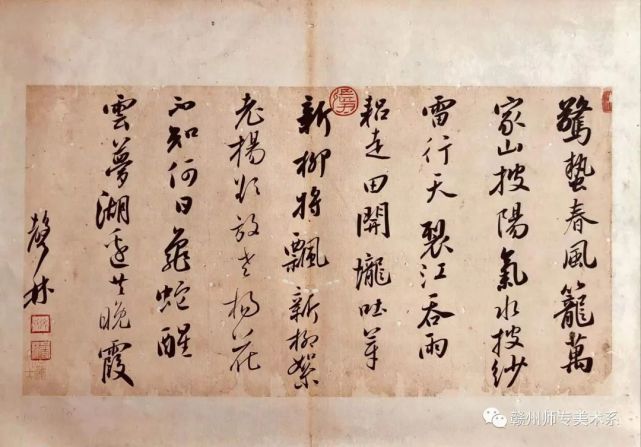 驚蟄春風籠萬
家山披陽氣水披紗
雷行天裂江吞雨
耜走田開壠吐芽
新柳將飄新柳絮
老楊欲放老楊花
不知何日龜蛇醒
雲夢湖邊共晚霞
林
赣州师专美术系